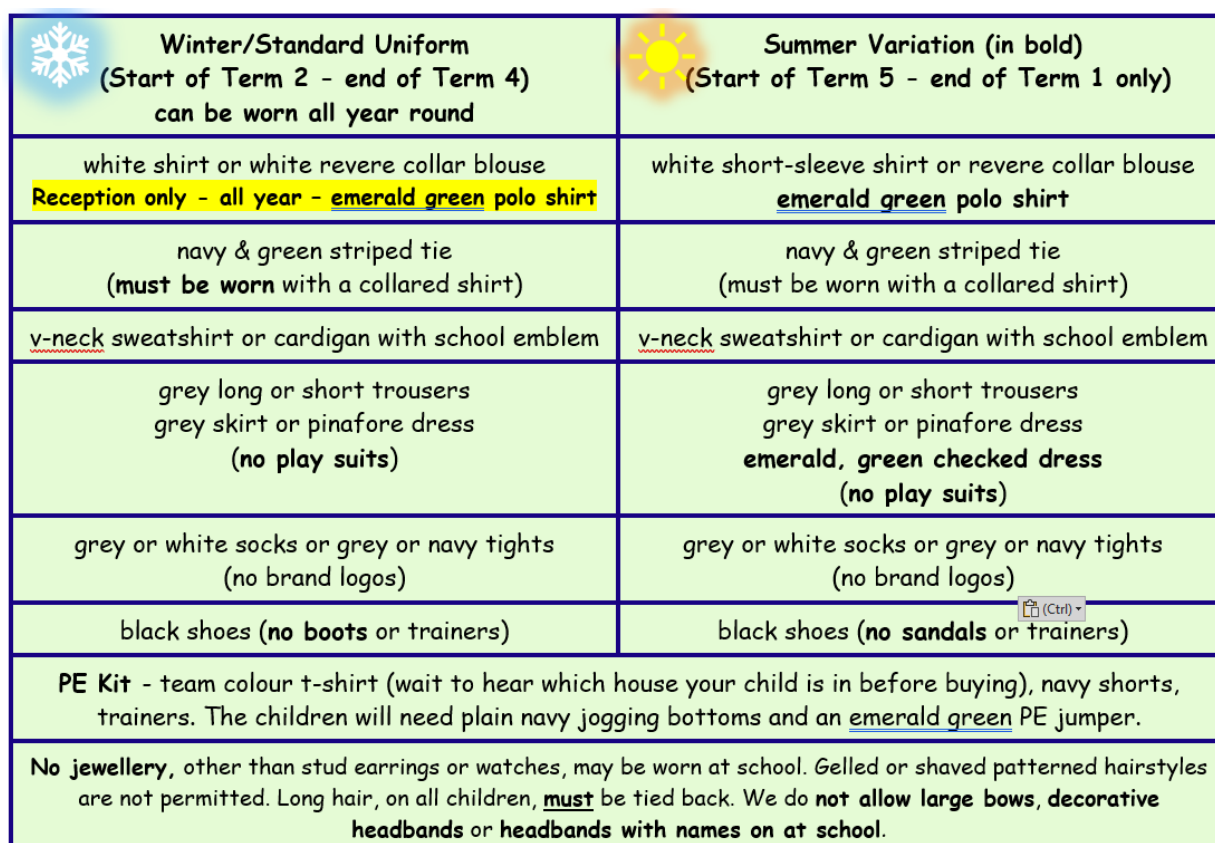 Winter/Standard Uniform
(Start of Term 2 - end of Term 4)
can be worn all year round
Summer Variation (in bold)
(Start of Term 5 - end of Term 1 only)
white shirt or white revere collar blouse
Reception only - all year – emerald green polo shirt
white short-sleeve shirt or revere collar blouse
emerald green polo shirt
navy & green striped tie
(must be worn with a collared shirt)
navy & green striped tie
(must be worn with a collared shirt)
v-neck sweatshirt or cardigan with school emblem
v-neck sweatshirt or cardigan with school emblem
grey long or short trousers
grey skirt or pinafore dress
(no play suits)
grey long or short trousers
grey skirt or pinafore dress
emerald, green checked dress
(no play suits)
grey or white socks or grey or navy tights
(no brand logos)
grey or white socks or grey or navy tights
(no brand logos)
(Ctrl)
black shoes (no boots or trainers)
black shoes (no sandals or trainers)
PE Kit - team colour t-shirt (wait to hear which house your child is in before buying), navy shorts,
trainers. The children will need plain navy jogging bottoms and an emerald green PE jumper.
No jewellery, other than stud earrings or watches, may be worn at school. Gelled or shaved patterned hairstyles
are not permitted. Long hair, on all children, must be tied back. We do not allow large bows, decorative
headbands or headbands with names on at school.